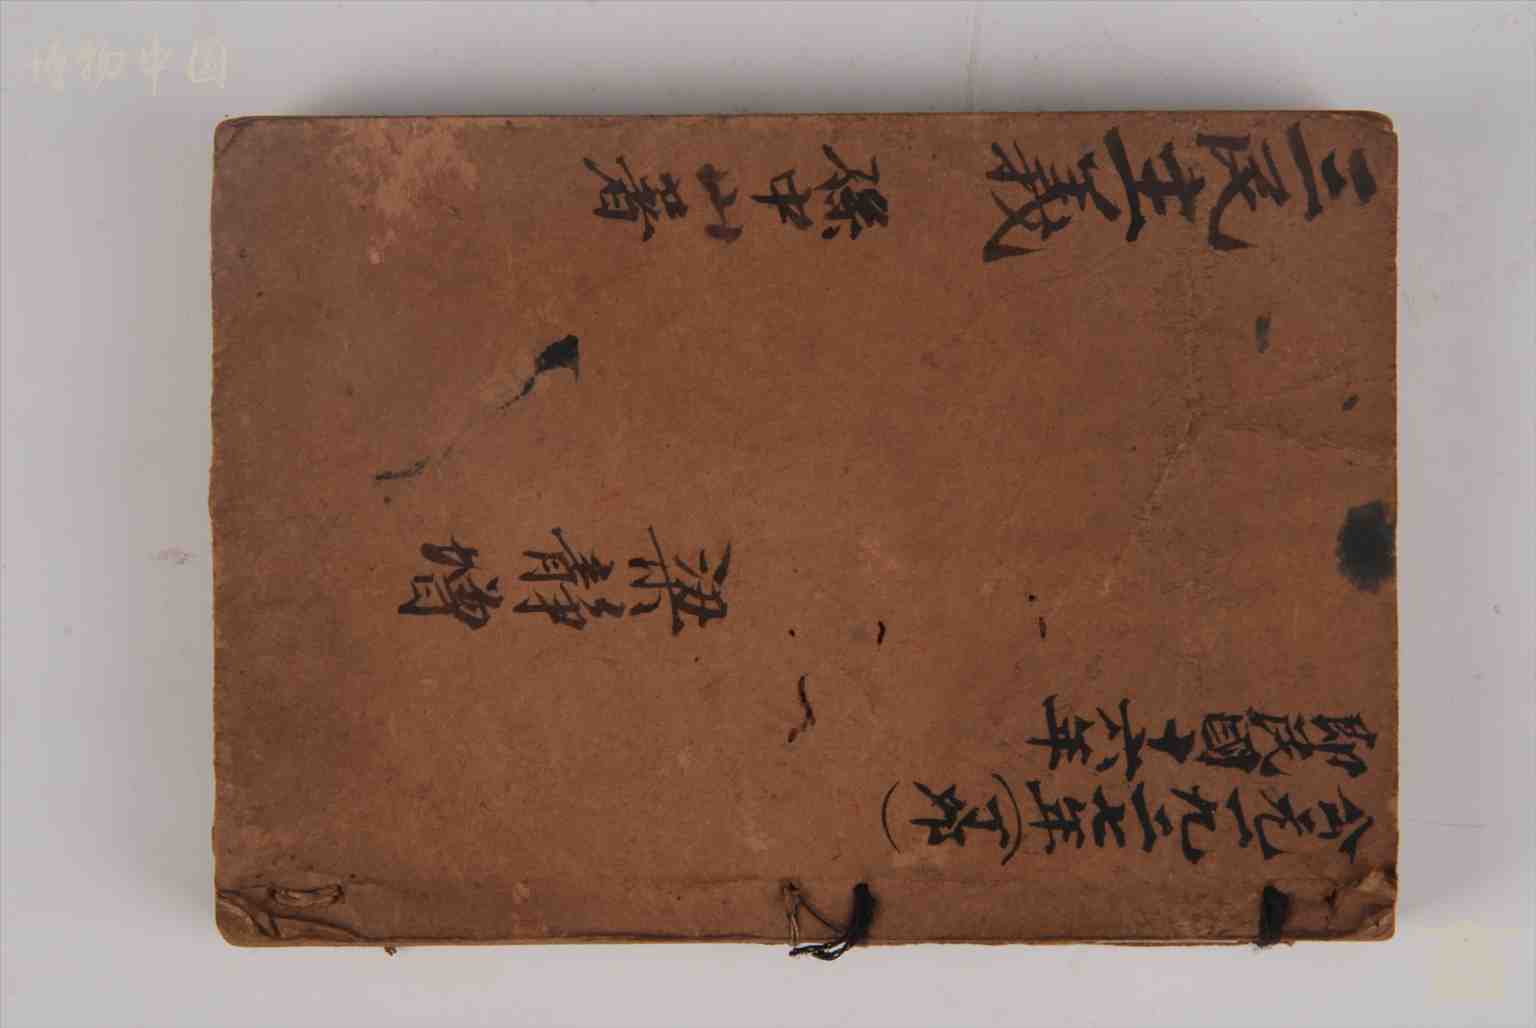 公元一九二七年(丁卯)
即民國十六年
梁靜
三民主義 孫中山著
博物中国